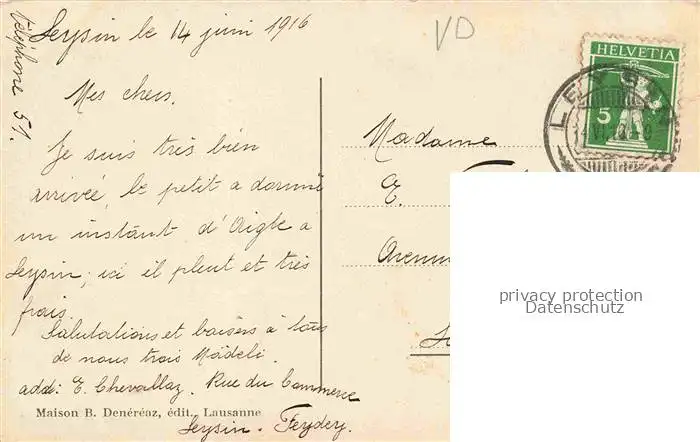 téléphone 51.
Leysin le 14 juin 1916
VD
HELVETIA
5
LEYSIN
Mes chers.
Je suis très bien
arrivée, le petit a dormi
un instant d'Aigle a
Leysin; ici il pleut et très
frais.
Salutations et baisers à tous
de nous trois Mädeli.
add: E. Chevallaz. Rue du Commerce
Leysin-Feydey.
Maison B. Denéréaz, édit., Lausanne
Madame
E.
privacy protection
Datenschutz